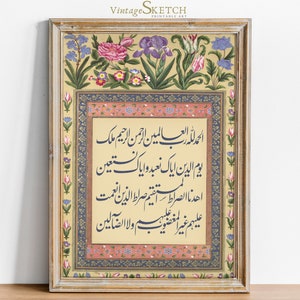 VintageSKETCH
PRINTABLE ART
الحمد لله رب العالمين الرحمن الرحيم ملك
يوم الدين اياك نعبد و اياك نستعين
اهدنا الصراط المستقيم صراط الذين انعمت
عليهم غير المغضوب عليهم ولا الضالين